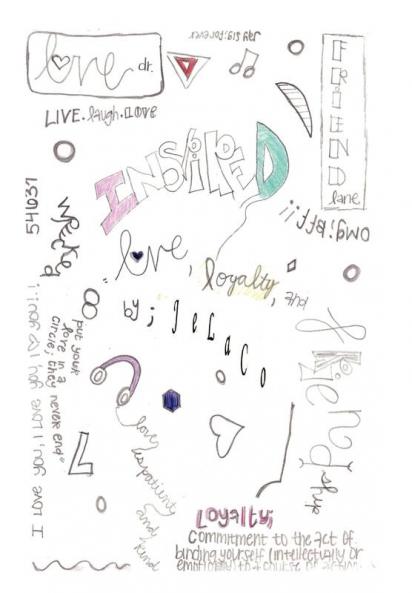 love dr.
Jay sig; forever
FRIEND
lane
LIVE. laugh. LOVE
INSPIRED
omg; bff;;
wrecked
love,
loyalty,
and
by; JeLaCo
friend
ship
put your
love in a
circle; they never end"
I LOVE you, I LOVE you, I you!..
love
is patient
and kind
Loyalty;
Commitment to the act of
binding yourself (intellectually or
emotionally) to a course of action.